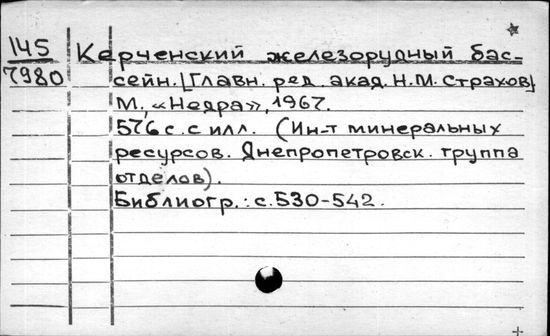 145
7980
Керченский железорудный бас-
сейн. [Главн. ред. акад. Н.М. Страхов]
М., «Недра», 1967.
576 с. с илл. (Ин-т минеральных
ресурсов. Днепропетровск. группа
отделов).
Библиогр.: с. 530-542.